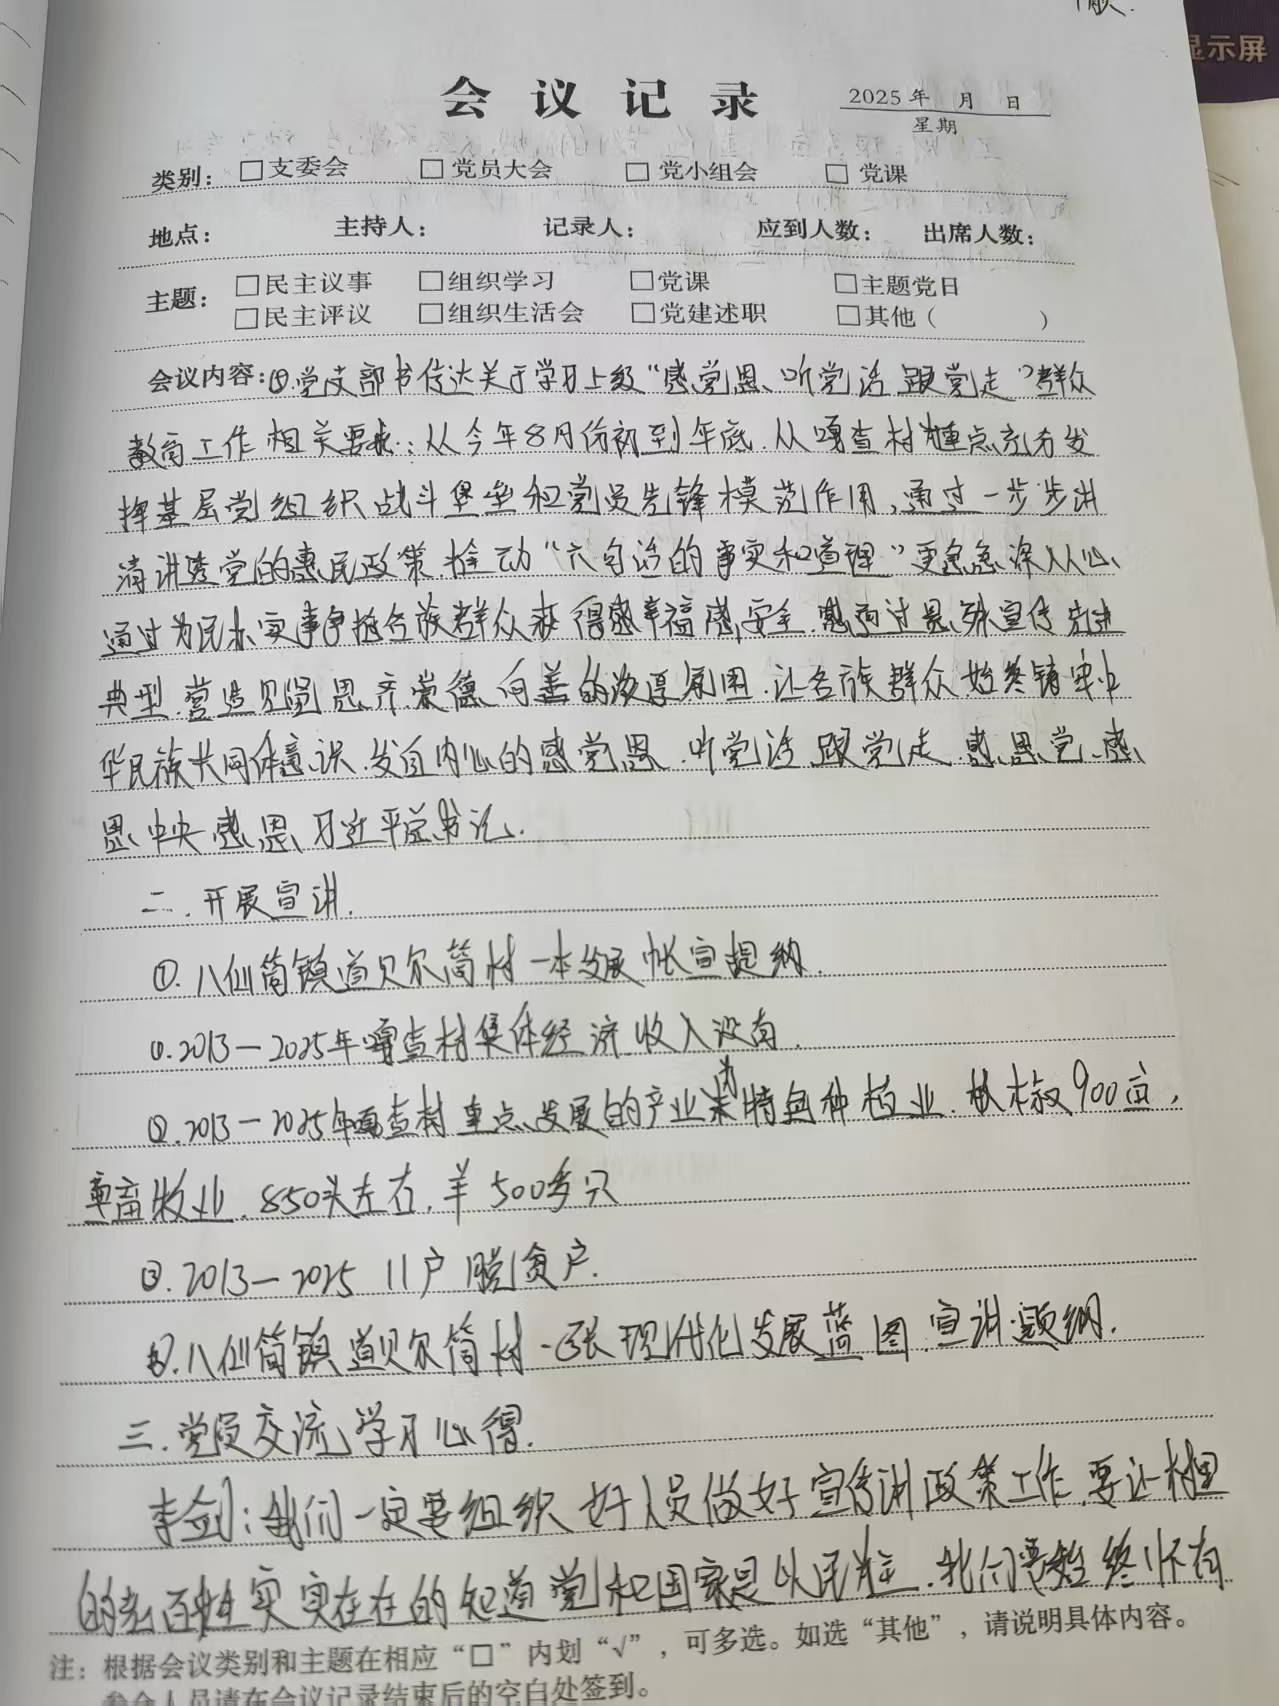 显示屏
会议记录
2025年 月 日
星期
类别： □支委会 □党员大会 □党小组会 □党课
地点： 主持人： 记录人： 应到人数： 出席人数：
主题： □民主议事 □组织学习 □党课 □主题党日
□民主评议 □组织生活会 □党建述职 □其他（ ）
会议内容：党支部书传达关于学习上级“感党恩、听党话 跟党走”群众
教育工作相关要求：从今年8月份初到年底.从嘎查村 重点充分发
挥基层党组织战斗堡垒和党员先锋模范作用，通过一步步讲
清讲透党的惠民政策.推动“六句话的事实和道理”更 深入人心、
通过为民办实事 各族群众获得感幸福感安全.感通过 宣传先进
典型.营造见贤思齐.崇德向善的浓厚氛围.让各族群众始终铸牢中
华民族共同体意识.发自内心的感党恩.听党话 跟党走.感恩党、感
恩中央感恩习近平总书记.
二.开展宣讲.
①.八仙筒镇道贝尔筒村一本发展帐宣提纲.
①.2013—2025年嘎查村集体经济收入没有.
②.2013—2025年嘎查村重点发展的产业 为特色种植业. 900亩，
畜牧业.850头左右.羊500多只
③.2013—2025 11户脱贫户.
八仙筒镇道贝尔筒村一张现代化发展蓝图.宣讲提纲.
三.党员交流学习心得.
李剑：我们一定要组织好人员做好宣传讲政策工作.要让村里
的老百姓实实在在的知道党和国家是以民为主.我们要始终怀有
注：根据会议类别和主题在相应“□”内划“√”，可多选。如选“其他”，请说明具体内容。
参会人员请在会议记录结束后的空白处签到。